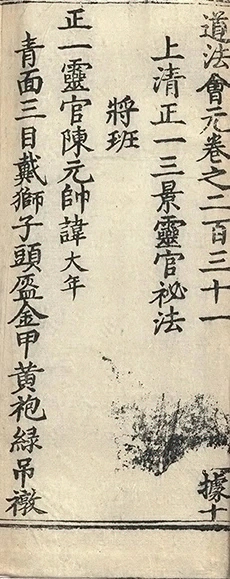 道法會元卷之二百三十一 據十
上清正一三景靈官祕法
將班
正一靈官陳元帥諱大年
青面三目戴獅子頭盔金甲黄袍綠吊襯